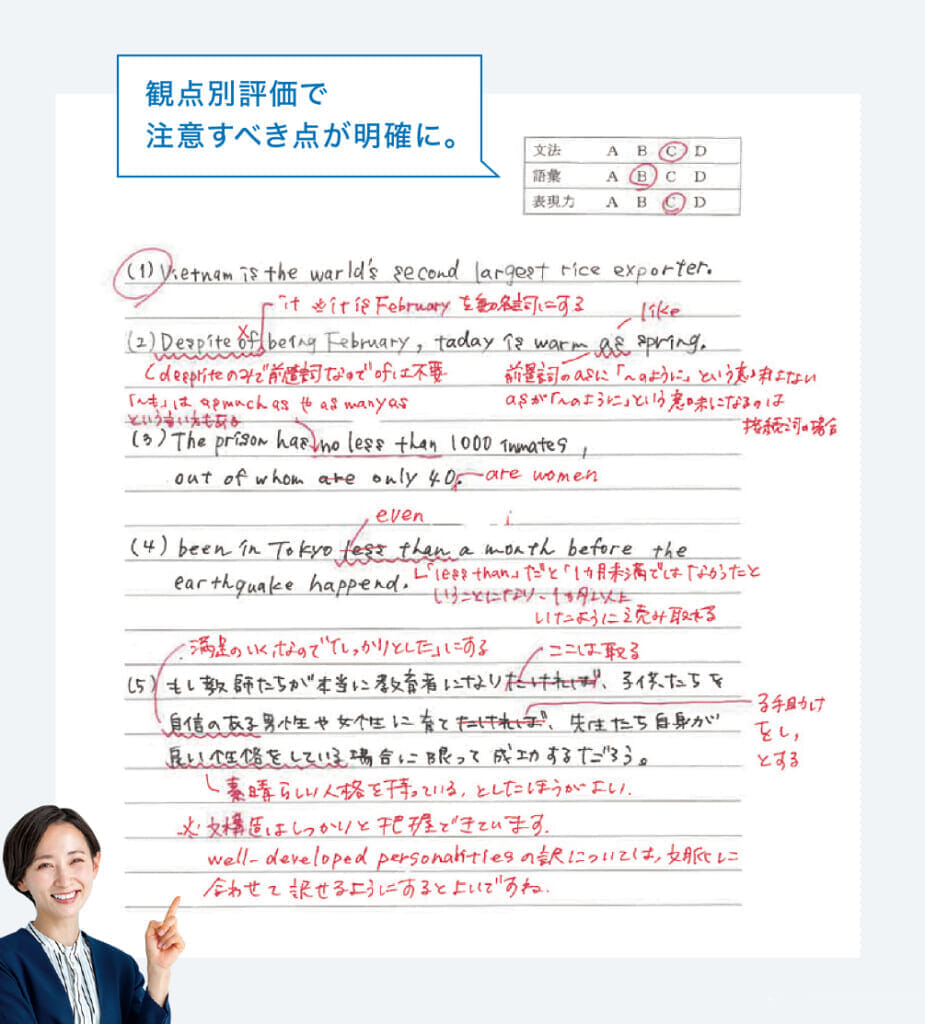 観点別評価で
注意すべき点が明確に。
文法 A B C D
語彙 A B C D
表現力 A B C D
(1) Vietnam is the world's second largest rice exporter.
it ※it is February を動名詞にする
like
(2) Despite of being February, taday is warm as spring.
despriteのみで前置詞なのでofは不要
前置詞のasに「〜のように」という意味はない
asが「〜のように」という意味になるのは
接続詞の場合
「〜も」は as much as や as many as
という言い方もある
(3) The prison has no less than 1000 inmates,
out of whom are only 40.
are women
even
(4) been in Tokyo less than a month before the
earthquake happend.
「less than」だと「1カ月未満ではなかったと
いうことになり、1カ月以上
いたように読み取れる
満足のいく、なので「しっかりとした」にする
ここは取る
(5) もし教師たちが本当に教育者になりたければ、子供たちを
自信のある男性や女性に育てたければ、先生たち自身が
良い性格をしている場合に限って成功するだろう。
る手助け
をし,
とする
素晴らしい人格を持っている, としたほうがよい.
※文構造はしっかりと把握できています.
well-developed personalities の訳については, 文脈に
合わせて訳せるようにするとよいですね.